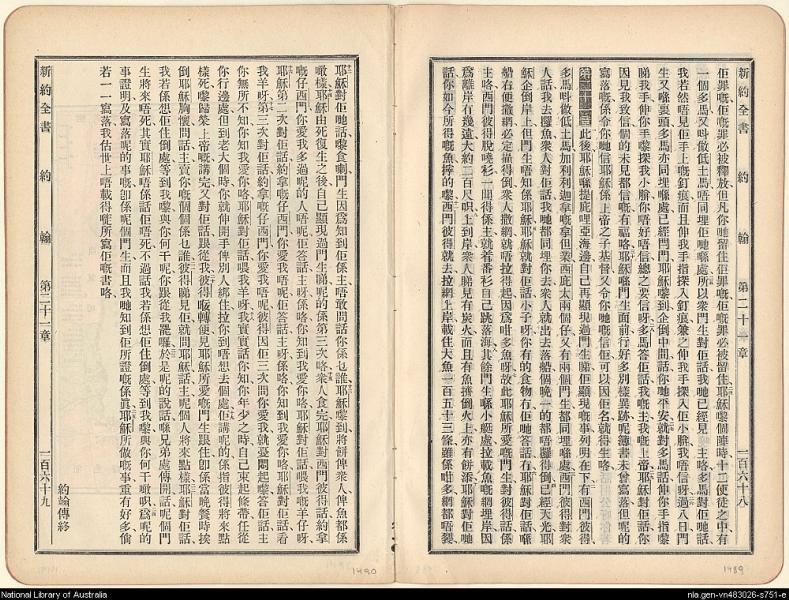 新約全書 約翰 第二十章 一百六十八
佢罪嘅佢嘅罪必被釋放但凡你哋留住佢罪嘅佢嘅罪必被留住耶穌嚟個陣時十二便徒之中有
一個多馬又呌做低土馬唔同埋佢哋喺處所以眾門生對佢話我哋已經見主咯多馬對佢哋話
我若然唔見佢手上嘅釘痕而且伸我手指探入釘痕兼之伸我手探入佢小膓我唔信呀過八日門
生又喺裏頭多馬亦同埋喺處已經閂門耶穌嚟到企倒中間話你哋平安就對多馬話伸你手指嚟
睇我手伸你手嚟探我小膓你唔好唔信總之要信呀多馬答佢話我嘅主我嘅上帝耶穌對佢話你
因見我致信個的未見都信嘅有福咯耶穌喺門生面前行好多別樣異跡呢書未曾寫落但呢的
寫落嘅係令你哋信耶穌係上帝之子基督又令你哋嘅信佢可以因佢名就得生咯
第二十一章此後耶穌喺提庇哩亞海邊自己再顯現過門生睇佢顯現嘅事列明在下有西門彼得
多馬呌做低土馬加利利迦拿嘅拿但業西庇太兩個仔又有兩個門生都同埋喺處西門彼得對眾
人話我去攞魚眾人對佢話我哋都同埋你去眾人就出去落船個晚一的都唔攞得倒已經天光耶
穌企倒岸上但門生唔知係耶穌耶穌就對佢話小子呀你有的食物冇佢哋答話冇耶穌對佢話係
船右便撒網必定攞得倒眾人撒網就唔拉得起因為咁多魚呀故此耶穌所愛嘅門生對彼得話係
主咯西門彼得脫嘵衫一聞得係主就着番衫自己跳落海其餘門生喺小艇處拉載魚嘅網埋岸因
為離岸有幾遠大約二百尺啫上到岸眾人睇見有炭火而且有魚擠倒火上亦有餅添耶穌對佢哋
話你如今所得嘅魚擰的嚟西門彼得就去拉網上岸載住大魚一百五十三條雖係咁多網都唔裂
耶穌對佢哋話嚟食喇門生因為知到佢係主唔敢問話你係乜誰耶穌嚟到將餅俾眾人俾魚都係
噉樣耶穌由死復生之後自己顯現過門生睇呢的係第三次咯眾人食完耶穌對西門彼得話約拿
嘅仔西門你愛我多過呢的人唔呢佢答話主呀係咯你知到我愛你咯耶穌對佢話餵我羊仔呀
耶穌第二次對佢話約拿嘅仔西門你愛我唔呢佢答話主呀係咯你知到我愛你咯耶穌對佢話看
我羊呀第三次對佢話約拿嘅仔西門你愛我唔呢彼得因佢三次問你愛我就憂悶起嚟答佢話主
你無所不知你知我愛你咯耶穌對佢話餵我羊呀我實實話你知你年少之時自己束起條帶任從
你行邊處但到老大個時你就伸開手俾別人綁住拉你到唔想去個處佢講呢的係指彼得將來點
樣死嚟歸榮上帝嘅講完又對佢話跟從我彼得囘轉便見耶穌所愛嘅門生跟住卽係當晚餐時挨
倒耶穌胸懷問話主賣你嘅個個係乜誰彼得睇見佢就問耶穌話主呢個人將來點樣耶穌對佢話
我若係想佢住倒處等到我嚟與你何干呢你跟從我罷囉於是呢的說話喺兄弟處傳開話呢個門
生將來唔死其實耶穌唔係話佢唔死不過話我若係想佢住倒處等到我嚟與你何干啫呢為呢的
事證明及寫落呢的事嘅卽係呢個門生而且我哋知到佢所證嘅係眞耶穌所做嘅事重有好多倘
若一一寫落我估世上唔載得嘥所寫佢嘅書咯
約翰傳終
新約全書 約翰 第二十一章 一百六十九
1490
1489
National Library of Australia
nla.gen-vn483026-s751-e